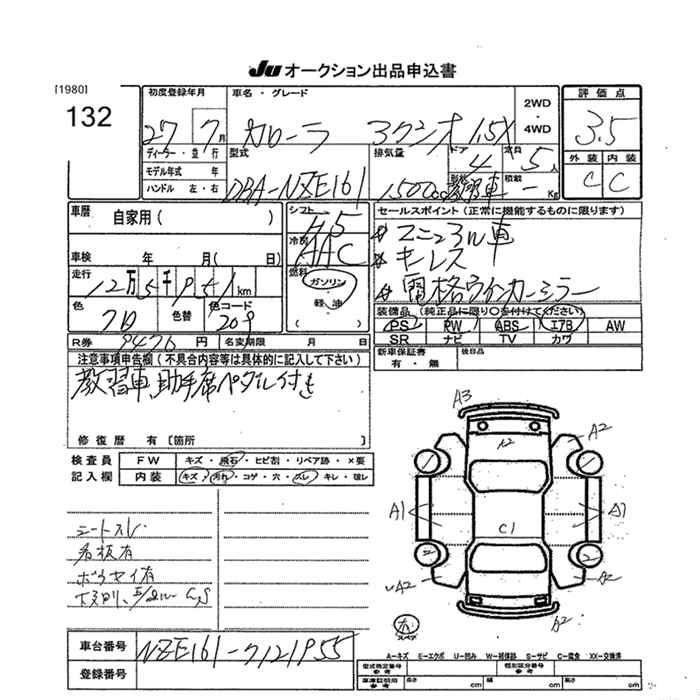 JU オークション出品申込書
[1980]
132
初度登録年月
27 7月
車名・グレード
カローラ アクシオ 1.5X
2WD
4WD
評価点
3.5
外装 内装
C C
ディーラー・並行
モデル年式 年
ハンドル 左・右
型式
DBA-NZE161
排気量
1500cc
ドア
4
定員
5人
形状
教習車
積載
- Kg
車歴
自家用( )
車検 年 月( 日)
走行
12万5千951km
色
色替
色コード
209
シフト
冷房
AAC
燃料
ガソリン
軽油
( )
セールスポイント(正常に機能するものに限ります)
マニュアル車
キーレス
電格ウインカーミラー
装備品(純正品に限り○を付けてください)
PS PW ABS エアB AW
SR ナビ TV カワ
R券 9476円
名変期限 月 日
新車保証書
有・無
後日品
注意事項申告欄(不具合内容等は具体的に記入して下さい)
教習車 助手席ペダル付き
修復歴 有〔箇所 〕
検査員
記入欄
FW キズ・飛石・ヒビ割・リペア跡・×要
内装 キズ・汚れ・コゲ・穴・スレ・キレ・破レ
シートスレ
看板有
A3
A2
A2
A1
A1
C1
A2
A2
A2
スペア
車台番号 NZE161-7121955
登録番号
A-キズ E-エクボ U-凹み W-補修跡 S-サビ C-腐食 XX-交換済
型式指定番号
参考
類別区分番号
参考
車庫証明用
参考
長さ cm 幅 cm 高さ cm